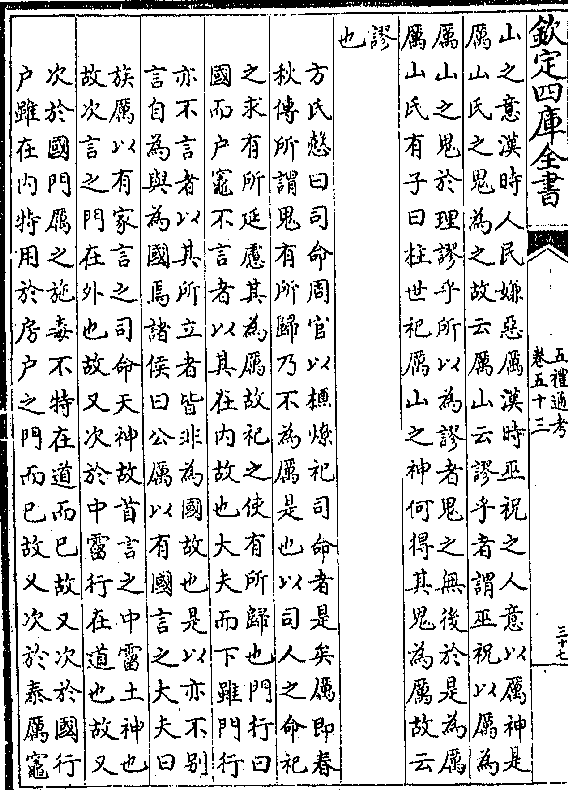 欽定四庫全書
五禮通考
卷五十三
三十七
山之意漢時人民嫌惡厲漢時巫祝之人意以厲神是
厲山氏之鬼為之故云厲山云謬乎者謂巫祝以厲為
厲山之鬼於理謬乎所以為謬者鬼之無後於是為厲
厲山氏有子曰柱世祀厲山之神何得其鬼為厲故云
謬也
方氏慤曰司命周官以槱燎祀司命者是矣厲即春
秋傳所謂鬼有所歸乃不為厲是也以司人之命祀
之求有所延慮其為厲故祀之使有所歸也門行曰
國而户竈不言者以其在内故也大夫而下雖門行
亦不言者以其所立者皆非為國故也是以亦不别
言自為與為國焉諸侯曰公厲以有國言之大夫曰
族厲以有家言之司命天神故首言之中霤土神也
故次言之門在外也故又次於中霤行在道也故又
次於國門厲之施毒不特在道而已故又次於國行
户雖在内特用於房户之門而已故又次於泰厲竈